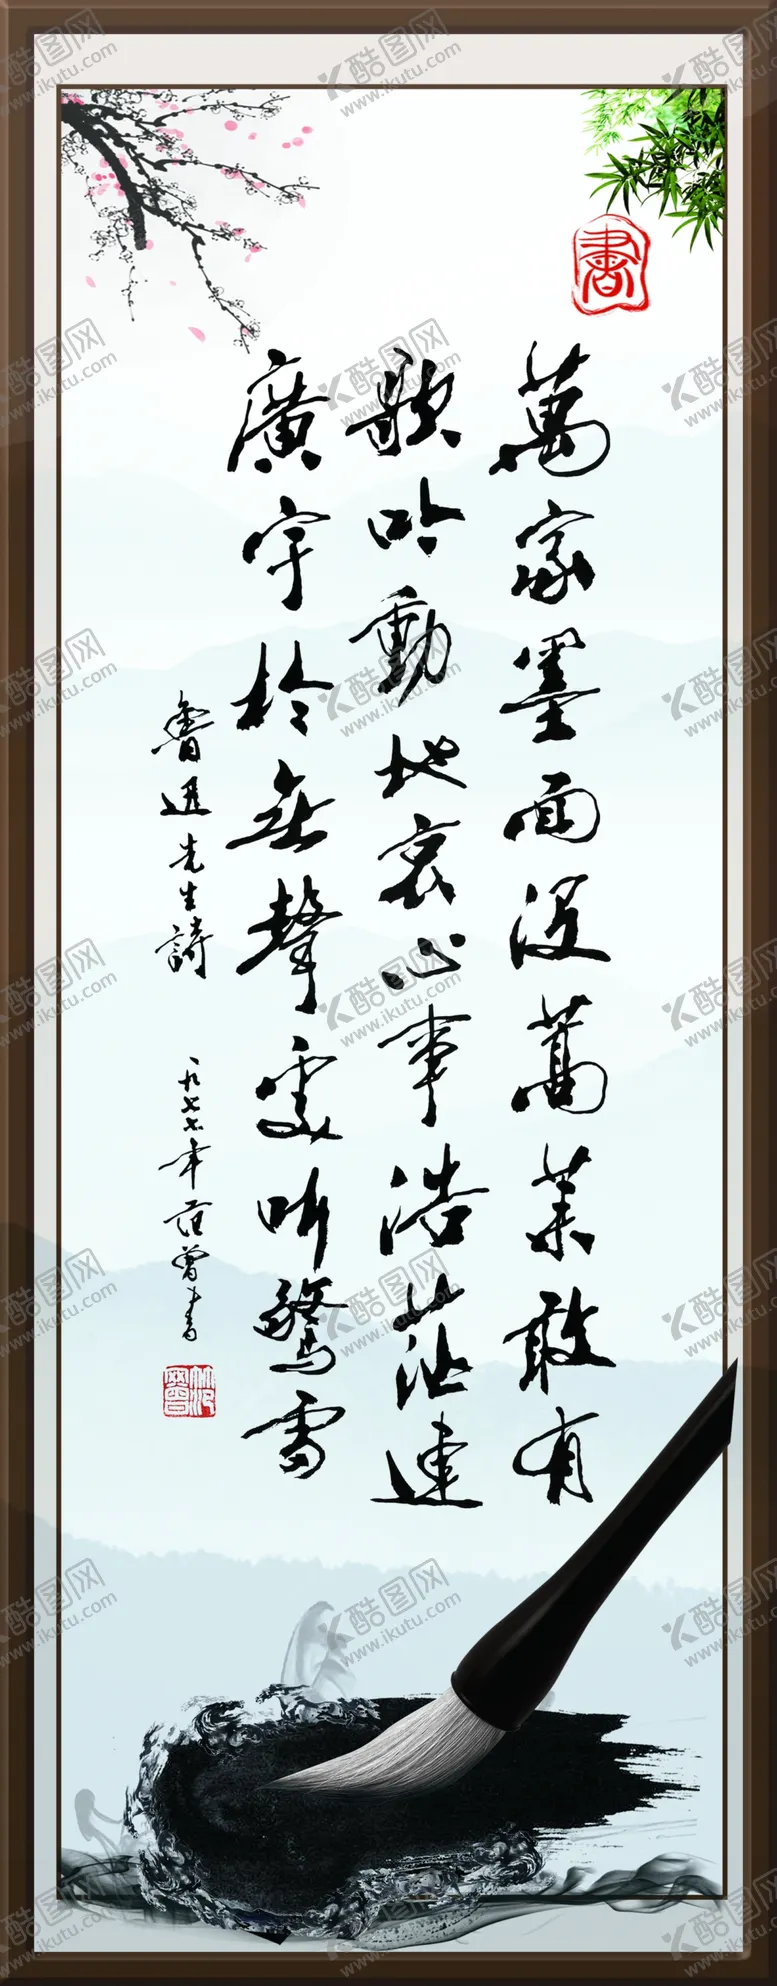 書
萬家墨面没蒿萊敢有
歌吟動地哀心事浩茫連
廣宇於無聲處听驚雷
魯迅先生詩 一九七七年范曾書
酷图网
www.ikutu.com